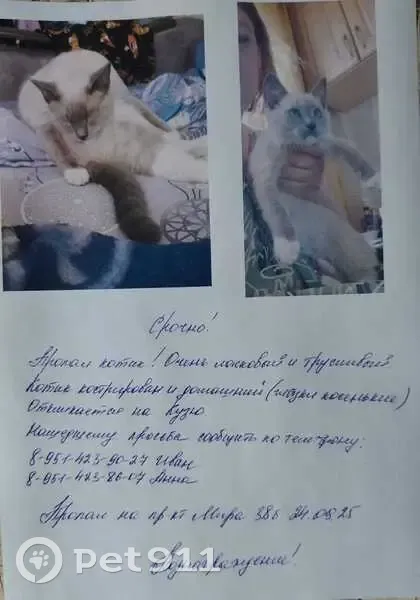 Срочно!
Пропал котик! Очень ласковый и трусливый
Котик кастрирован и домашний (глазки косенькие)
Откликается на Кузю
Нашедшему просьба сообщить по телефону:
8-951-423-90-27 Иван
8-951-473-86-07 Анна
Пропал на пр-кт Мира 38б 24.05.25
Вознаграждение!
pet911